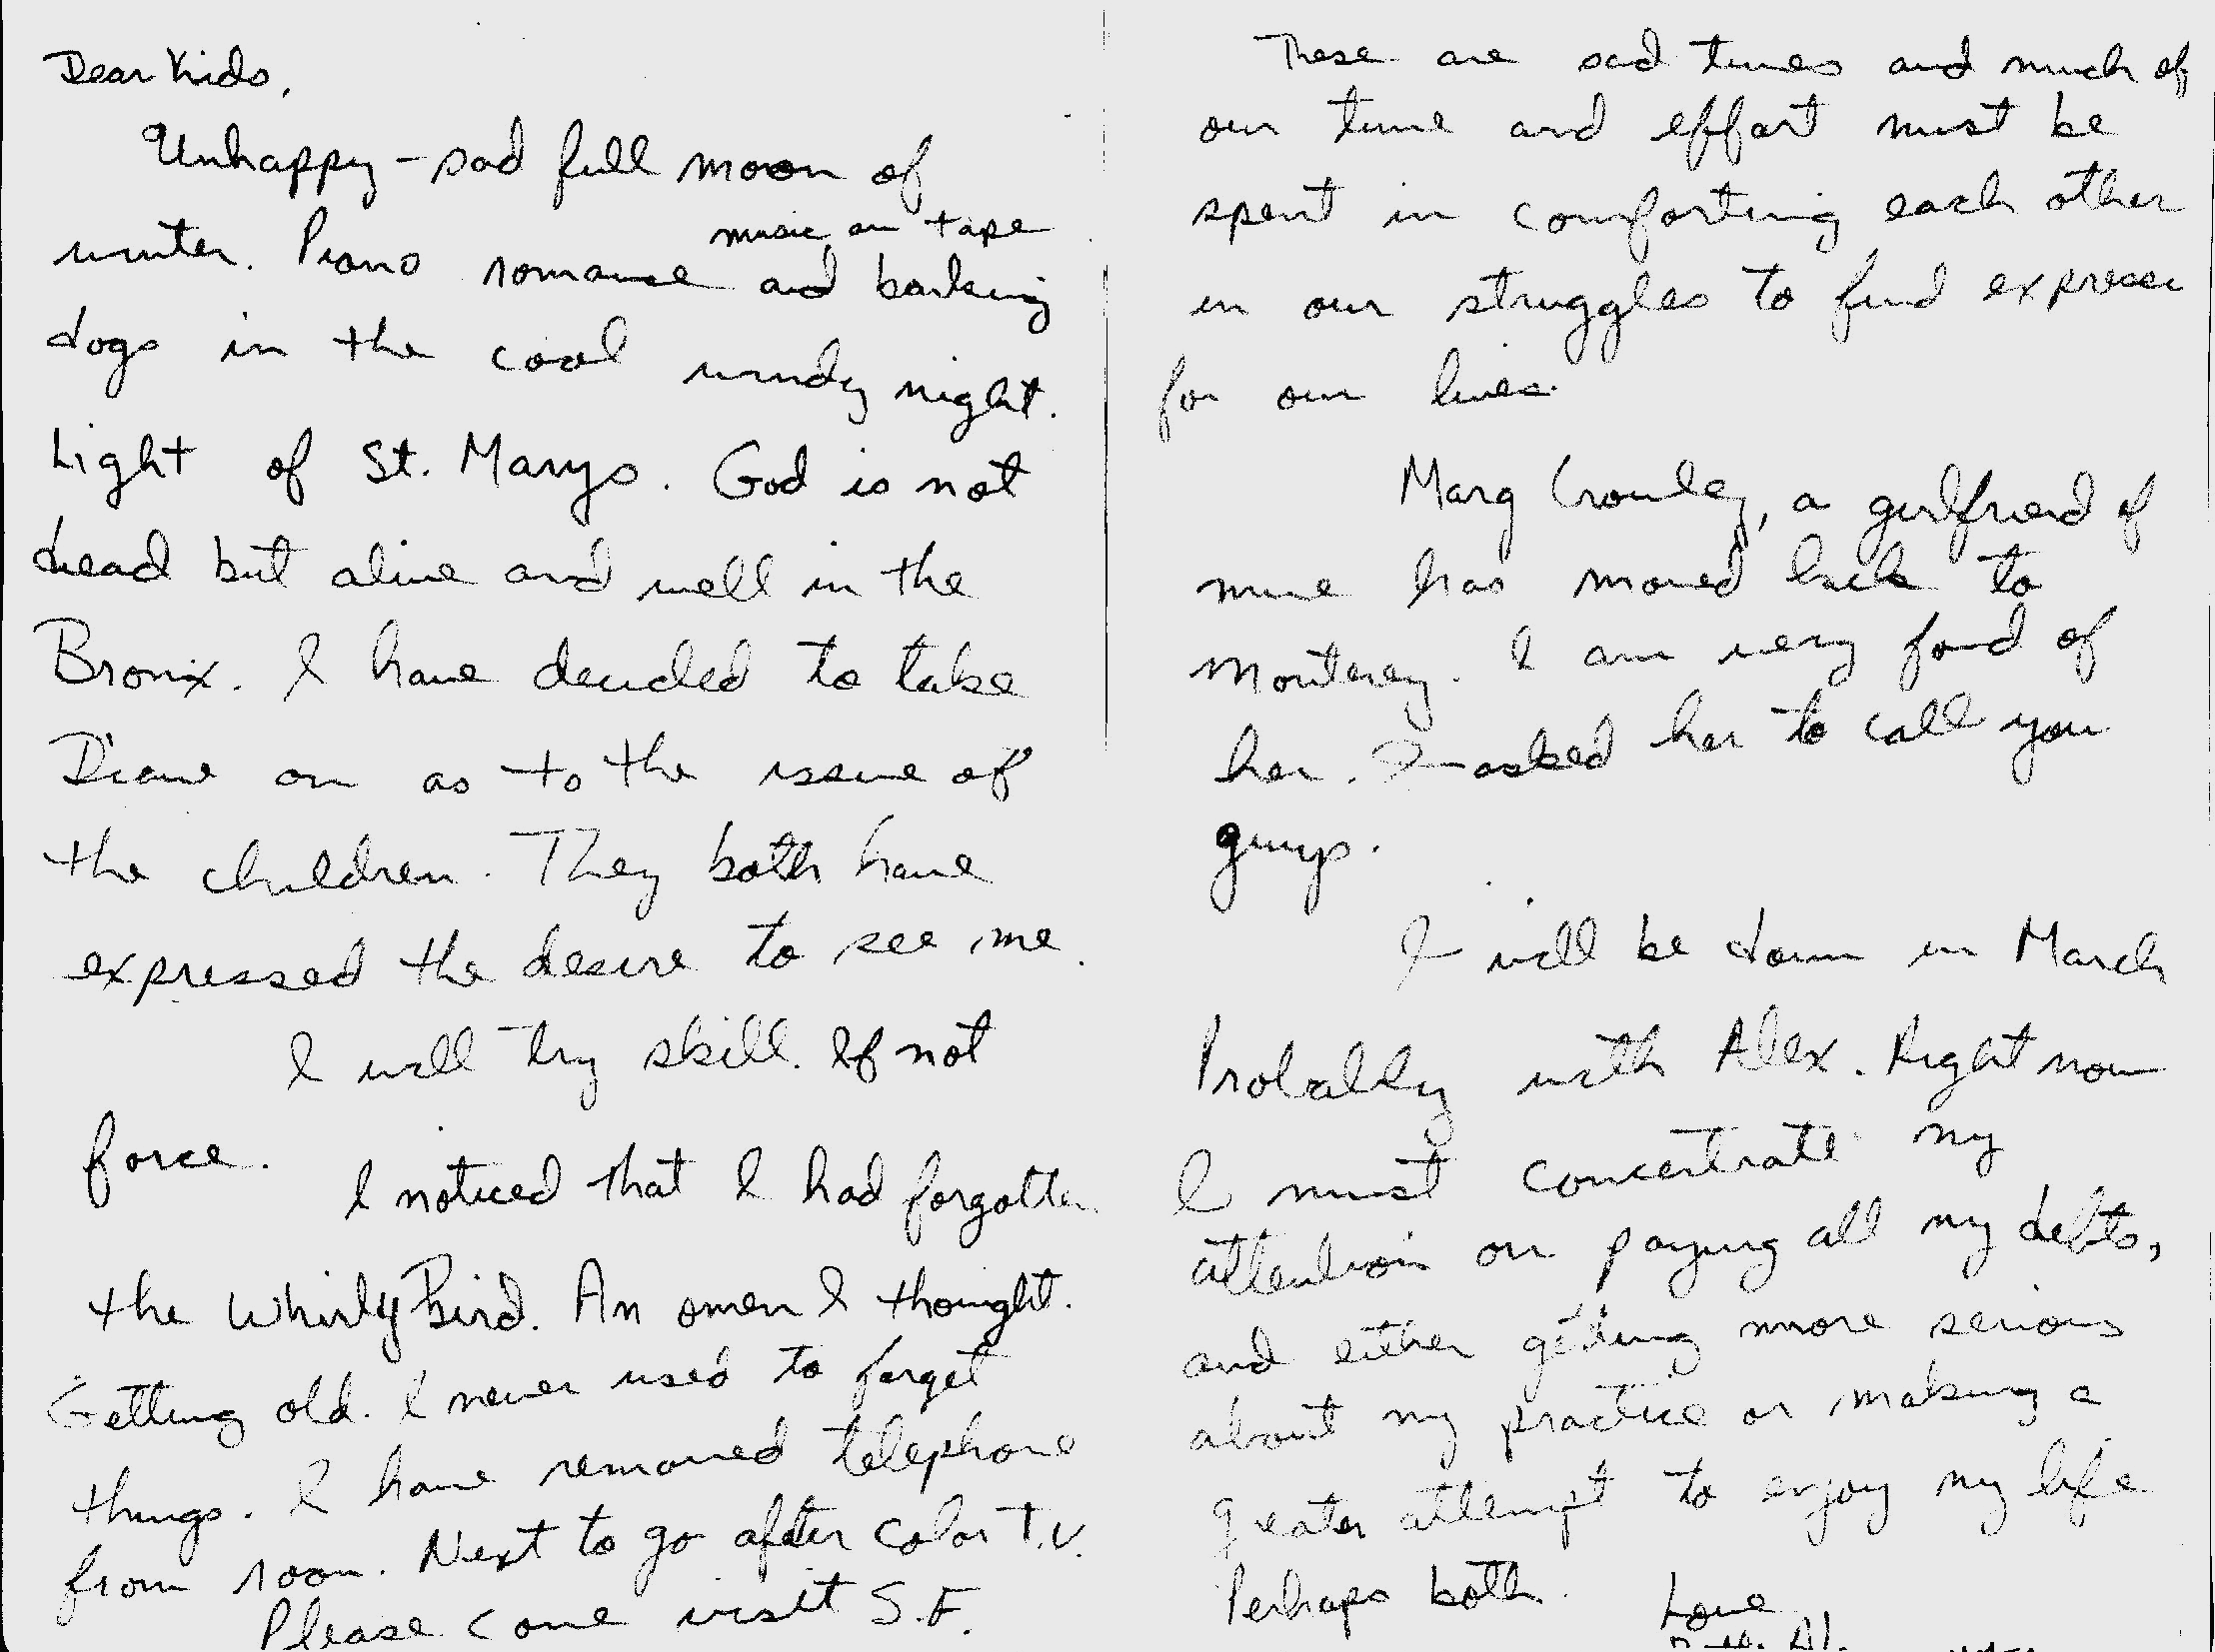 Dear Kids,
Unhappy - sad full moon of
winter. Piano romance music on tape and barking
dogs in the cool windy night.
Light of St. Marys. God is not
dead but alive and well in the
Bronx. I have decided to take
Diane on as to the issue of
the children. They both have
expressed the desire to see me.
I will try skill. If not
force.
I noticed that I had forgotten
the Whirly Bird. An omen I thought.
Getting old. I never used to forget
things. I have removed telephone
from room. Next to go after color T.V.
Please come visit S.F.
These are sad times and much of
our time and effort must be
spent in comforting each other
in our struggles to find
for our lives.
Marg Crowley, a girlfriend of
mine has moved back to
Monterey. I am very fond of
her. I asked her to call you
guys.
I will be down in March
Probably with Alex. Right now
I must concentrate my
attention on paying all my debts,
and either getting more serious
about my practice or making a
greater attempt to enjoy my life
Perhaps both.
Love